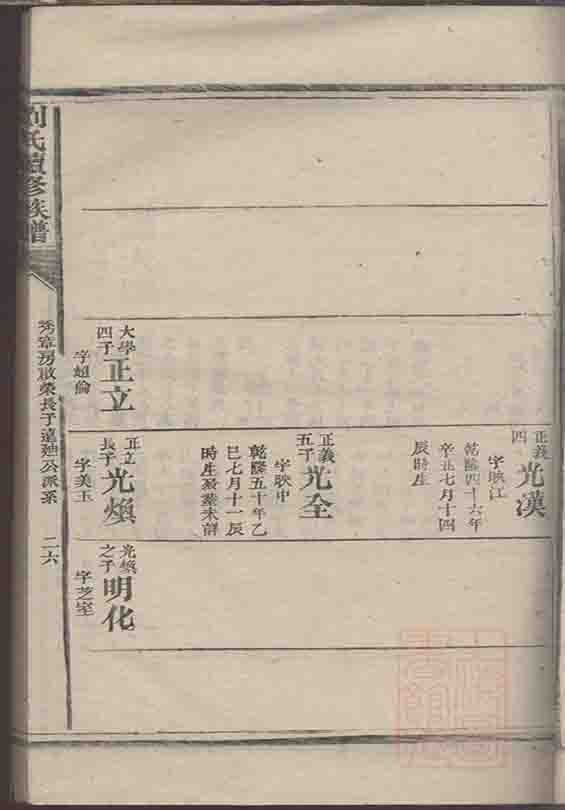 正義
四
光漢
字映江
乾隆四十六年
辛丑七月十四
辰時生
正義
五子
光全
字映中
乾隆五十年乙
巳七月十一辰
時生娶葉未詳
大學
四子
正立
字超倫
正立
長子
光煥
字美玉
光煥
之子
明化
字芝室
劉氏續修族譜
秀章房啟榮長子遠迪公派系
二六